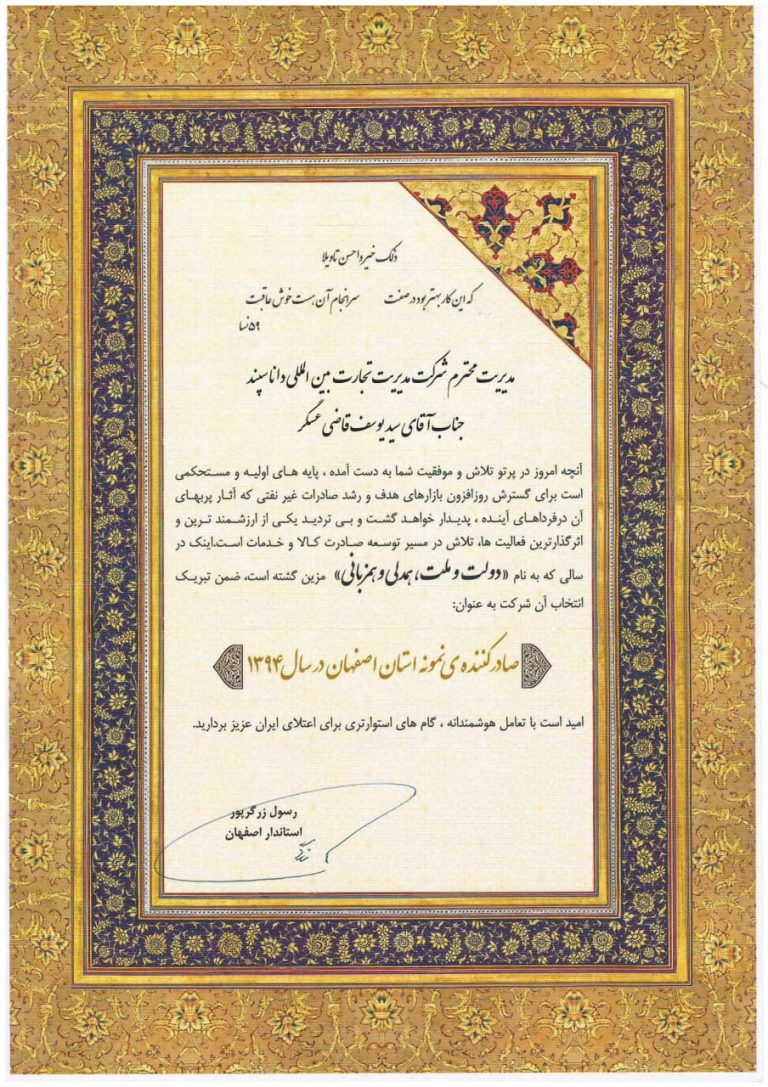 ذلک خیر واحسن تاویلا
که این کار بهتر بود در صفت سرانجام آن هست خوش عاقبت
۵۹ نسا
مدیریت محترم شرکت مدیریت تجارت بین المللی دانا سپند
جناب آقای سید یوسف قاضی عسگر
آنچه امروز در پرتو تلاش و موفقیت شما به دست آمده ، پایه های اولیه و مستحکمی
است برای گسترش روزافزون بازارهای هدف و رشد صادرات غیر نفتی که آثار پربهای
آن درفرداهای آینده ، پدیدار خواهد گشت و بی تردید یکی از ارزشمند ترین و
اثرگذارترین فعالیت ها، تلاش در مسیر توسعه صادرت کالا و خدمات است.اینک در
سالی که به نام «دولت و ملت، همدلی و همزبانی» مزین گشته است، ضمن تبریک
انتخاب آن شرکت به عنوان:
صادرکننده ی نمونه استان اصفهان در سال ۱۳۹۴
امید است با تعامل هوشمندانه ، گام های استوارتری برای اعتلای ایران عزیز بردارید.
رسول زرگرپور
استاندار اصفهان